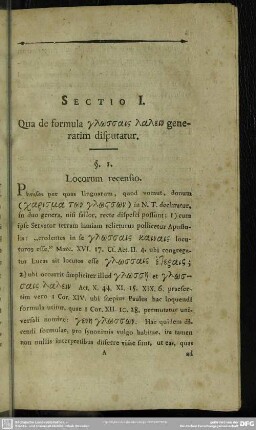 SECTIO I.
Qua de formula γλωσσαις λαλειν gene-
ratim disputatur.
§. 1.
Locorum recensio.
per quae linguarum, quod vocant, donum
(χαρισμα των γλωσσων) in N. T. declaratur,
in duo genera, nisi fallor, recte dispesci possunt: 1) cum
ipse Servator terram iamiam relicturus pollicetur Apostu-
lis: credentes in se γλωσσαις καιναις locu-
turos esse. Marc. XVI. 17. Cf. Act. II. 4. ubi congrega-
tos Lucas ait locutos esse γλωσσαις ετεραις;
2) ubi occurrit simpliciter illud γλωσση et γλωσ-
σαις λαλειν Act. X. 44. XI. 15. XIX. 6. praeter-
sim vero 1 Cor. XIV. ubi saepius Paulus hac loquendi
formula utitur, quae 1 Cor. XII. 10. 28. permutatur uni-
versali nomine: γενη γλωσσων. Hae quidem di-
cendi formulae, pro synonimis vulgo habitae, in tamen
non nullis interpretibus disertae visae sunt, ut eas, quas
A
ad